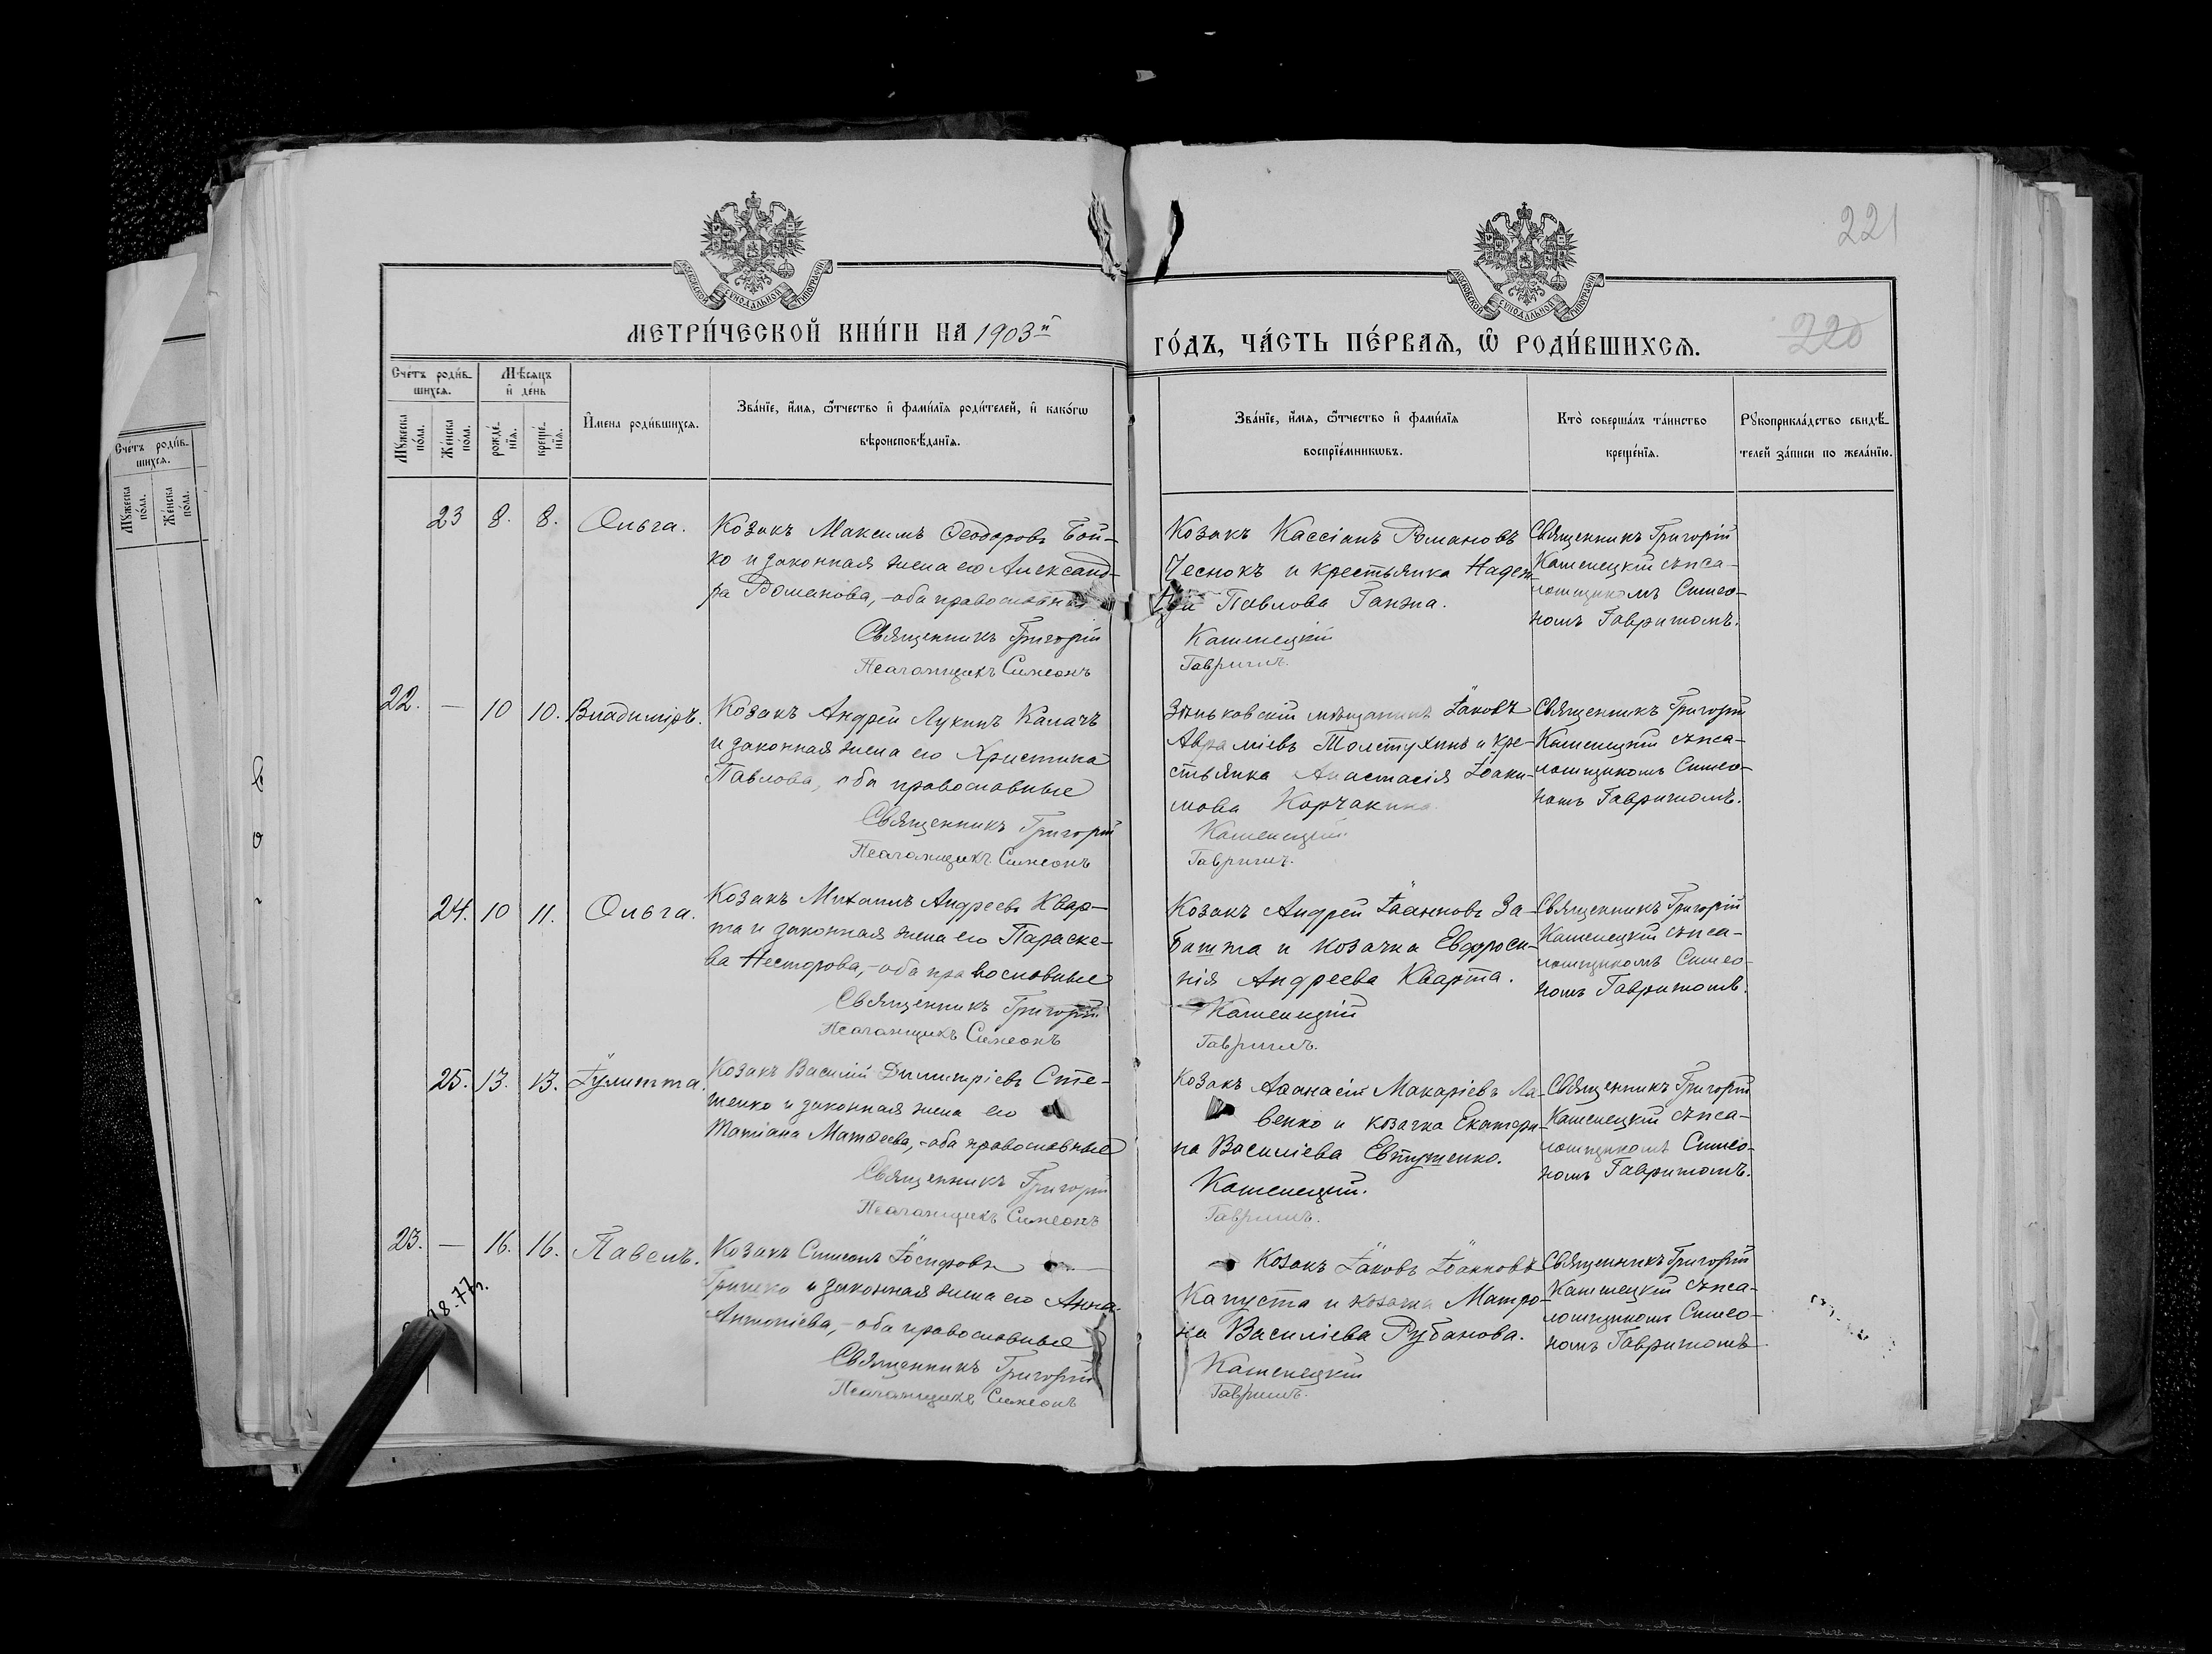 221
МОСКОВСКОЙ СѴНОДАЛЬНОЙ ТИПОГРАФІИ
МОСКОВСКОЙ СѴНОДАЛЬНОЙ ТИПОГРАФІИ
МЕТРИ́ЧЕСКОЙ КНИ́ГИ НА 1903й
ГО́ДЪ, ЧА́СТЬ ПЕ́РВАЯ, Ѡ РОДИ́ВШИХСЯ.
220
Сче́тъ роди́в-
шихся.
Мꙋ́жеска
по́ла.
Же́нска
по́ла.
Сче́тъ роди́в-
шихся.
Мѣ́сяцъ
и де́нь
Мꙋ́жеска
по́ла.
Же́нска
по́ла.
рожде́-
нїя.
креще́-
нїя.
И҆мена роди́вшихся.
Зва́нїе, и҆мя, ѻ҆́тчество и҆ фами́лїя роди́телей, и҆ како́гѡ
вѣроисповѣ́данїя.
Зва́нїе, и҆мя, ѻ҆́тчество и҆ фами́лїя
воспрїе́мникѡвъ.
Кто̀ соверша́лъ та́инство
креще́нїя.
Рꙋкоприкла́дство свидѣ́-
телей за́писи по жела́нїю.
23 8. 8. Ольга.
Козакъ Максимъ Ѳеодоровъ Бой-
ко и законная жена его Александ-
ра Романова, - оба православные
Священникъ Григорій
Псаломщикъ Симеонъ
Козакъ Кассіанъ Романовъ
Чеснокъ и крестьянка Надеж-
да Павлова Ганжа.
Каменецкій
Гавришъ.
Священникъ Григорій
Каменецкій съ пса-
ломщикомъ Симео-
номъ Гавришомъ.
22. — 10 10. Владиміръ.
Козакъ Андрей Лукинъ Калачъ
и законная жена его Христина
Павлова, оба православные
Священникъ Григорій
Псаломщикъ Симеонъ
Зѣньковскій мѣщанинъ Іаковъ
Авраміевъ Толстухинъ и кре-
стьянка Анастасія Іоаки-
мова Корчакина
Каменецкій
Гавришъ.
Священникъ Григорій
Каменецкій съ пса-
ломщикомъ Симео-
номъ Гавришомъ.
24. 10 11. Ольга.
Козакъ Михаилъ Андреевъ Квар-
та и законная жена его Параске-
ва Несторова, - оба православные
Священникъ Григорій
Псаломщикъ Симеонъ
Козакъ Андрей Іоанновъ За-
башта и козачка Евфроси-
нія Андреева Кварта.
Каменецкій
Гавришъ.
Священникъ Григорій
Каменецкій съ пса-
ломщикомъ Симео-
номъ Гавришомъ.
25. 13. 13. Іулитта.
Козакъ Василій Димитріевъ Сте-
ценко и законная жена его
Татіана Матѳеева, - оба православные
Священникъ Григорій
Псаломщикъ Симеонъ
Козакъ Аѳанасій Макаріевъ Ла-
венко и козачка Екатери-
на Василіева Евтушенко.
Каменецкій.
Гавришъ.
Священникъ Григорій
Каменецкій съ пса-
ломщикомъ Симео-
номъ Гавришомъ.
23. — 16. 16. Павелъ.
Козакъ Симеонъ Іосифовъ
Гришко и законная жена его Анна
Антоніева, - оба православные
Священникъ Григорій
Псаломщикъ Симеонъ
Козакъ Іаковъ Іоанновъ
Капуста и козачка Матро-
на Василіева Рубанова.
Каменецкій
Гавришъ.
Священникъ Григорій
Каменецкій съ пса-
ломщикомъ Симео-
номъ Гавришомъ